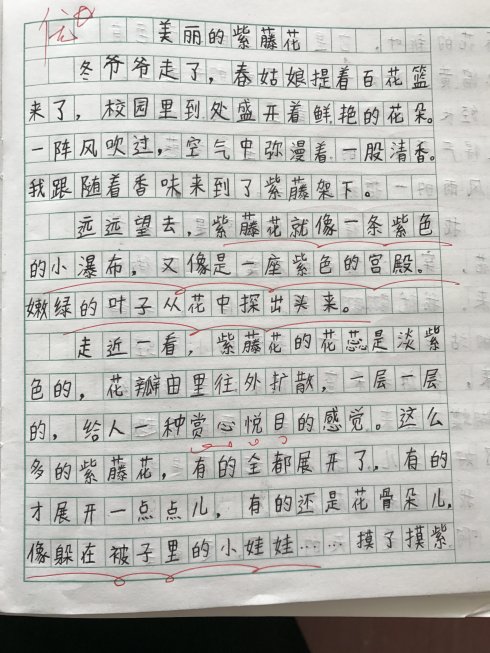 优
美丽的紫藤花
冬爷爷走了，春姑娘提着百花篮
来了，校园里到处盛开着鲜艳的花朵。
一阵风吹过，空气中弥漫着一股清香。
我跟随着香味来到了紫藤架下。
远远望去，紫藤花就像一条紫色
的小瀑布，又像是一座紫色的宫殿。
嫩绿的叶子从花中探出头来。
走近一看，紫藤花的花蕊是淡紫
色的，花瓣由里往外扩散，一层一层
的，给人一种赏心悦目的感觉。这么
多的紫藤花，有的全都展开了，有的
才展开一点点儿，有的还是花骨朵儿，
像躲在被子里的小娃娃……摸了摸紫